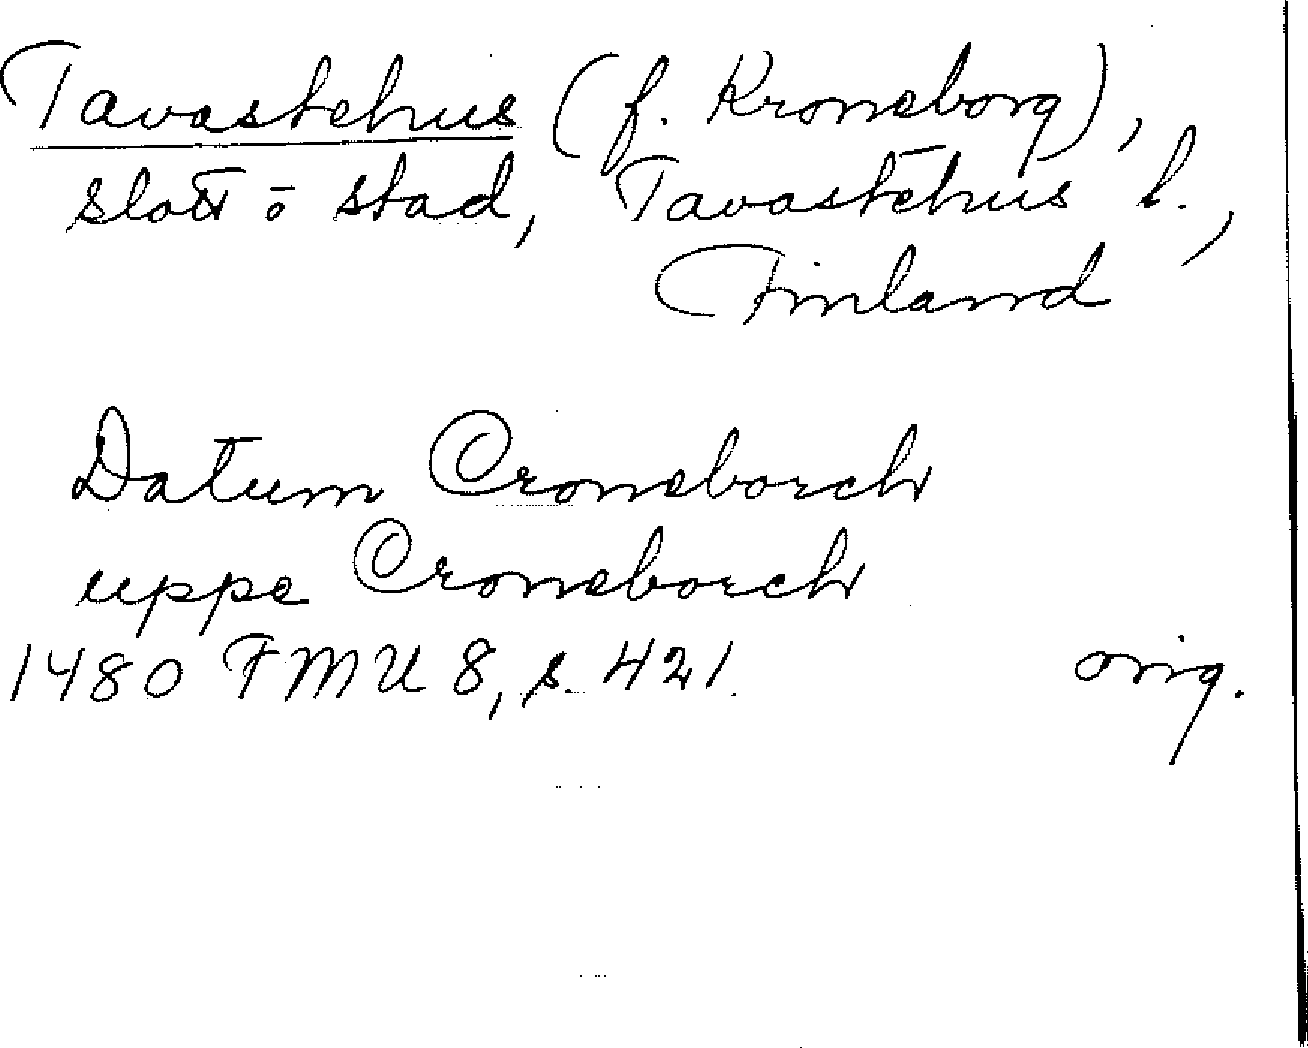 Tavastehus (f. Kroneborg),
slott o stad, Tavastehus l.,
Finland
Datum Croneborch
uppe Croneborch
1480 FMU 8, s. 421. orig.